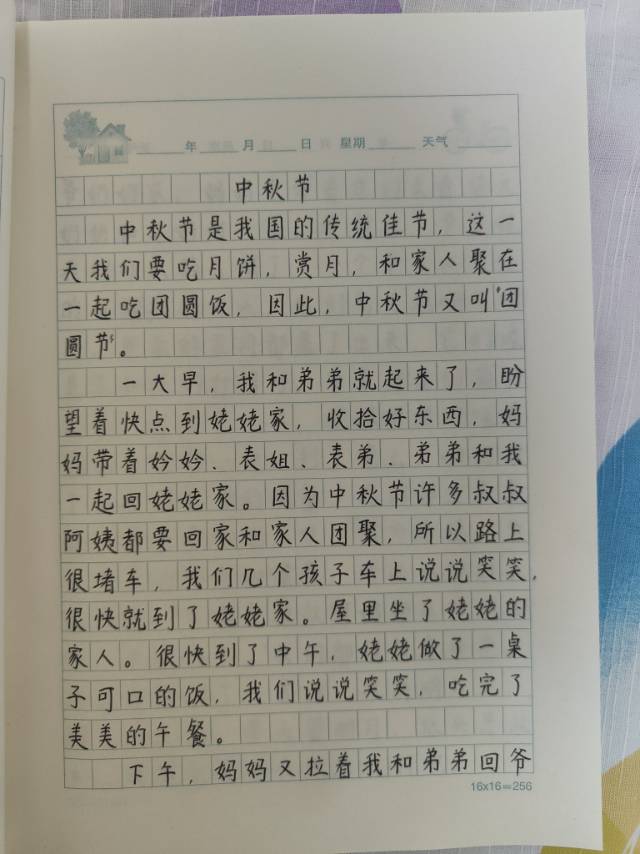 年 月 日 星期 天气
中秋节
中秋节是我国的传统佳节，这一
天我们要吃月饼，赏月，和家人聚在
一起吃团圆饭，因此，中秋节又叫“团
圆节”。
一大早，我和弟弟就起来了，盼
望着快点到姥姥家，收拾好东西，妈
妈带着妗妗、表姐、表弟、弟弟和我
一起回姥姥家。因为中秋节许多叔叔
阿姨都要回家和家人团聚，所以路上
很堵车，我们几个孩子车上说说笑笑，
很快就到了姥姥家。屋里坐了姥姥的
家人。很快到了中午，姥姥做了一桌
子可口的饭，我们说说笑笑，吃完了
美美的午餐。
下午，妈妈又拉着我和弟弟回爷
16x16=256